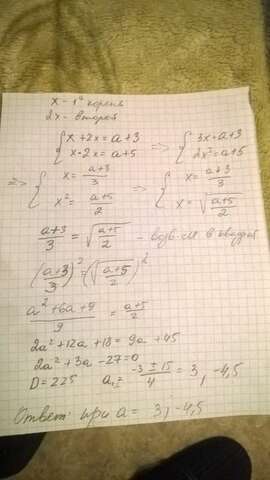 x - 1ый корень
2x - второй
{ x + 2x = a+3 => { 3x = a+3
{ x · 2x = a+5 { 2x² = a+5
=> { x = (a+3)/3 => { x = (a+3)/3
{ x² = (a+5)/2 { x = √((a+5)/2)
(a+3)/3 = √((a+5)/2) - возв-м в квадрат
((a+3)/3)² = (√((a+5)/2))²
(a² + 6a + 9)/9 = (a+5)/2
2a² + 12a + 18 = 9a + 45
2a² + 3a - 27 = 0
D = 225 a₁,₂ = (-3 ± 15)/4 = 3; -4,5
Ответ: при a = 3; -4,5